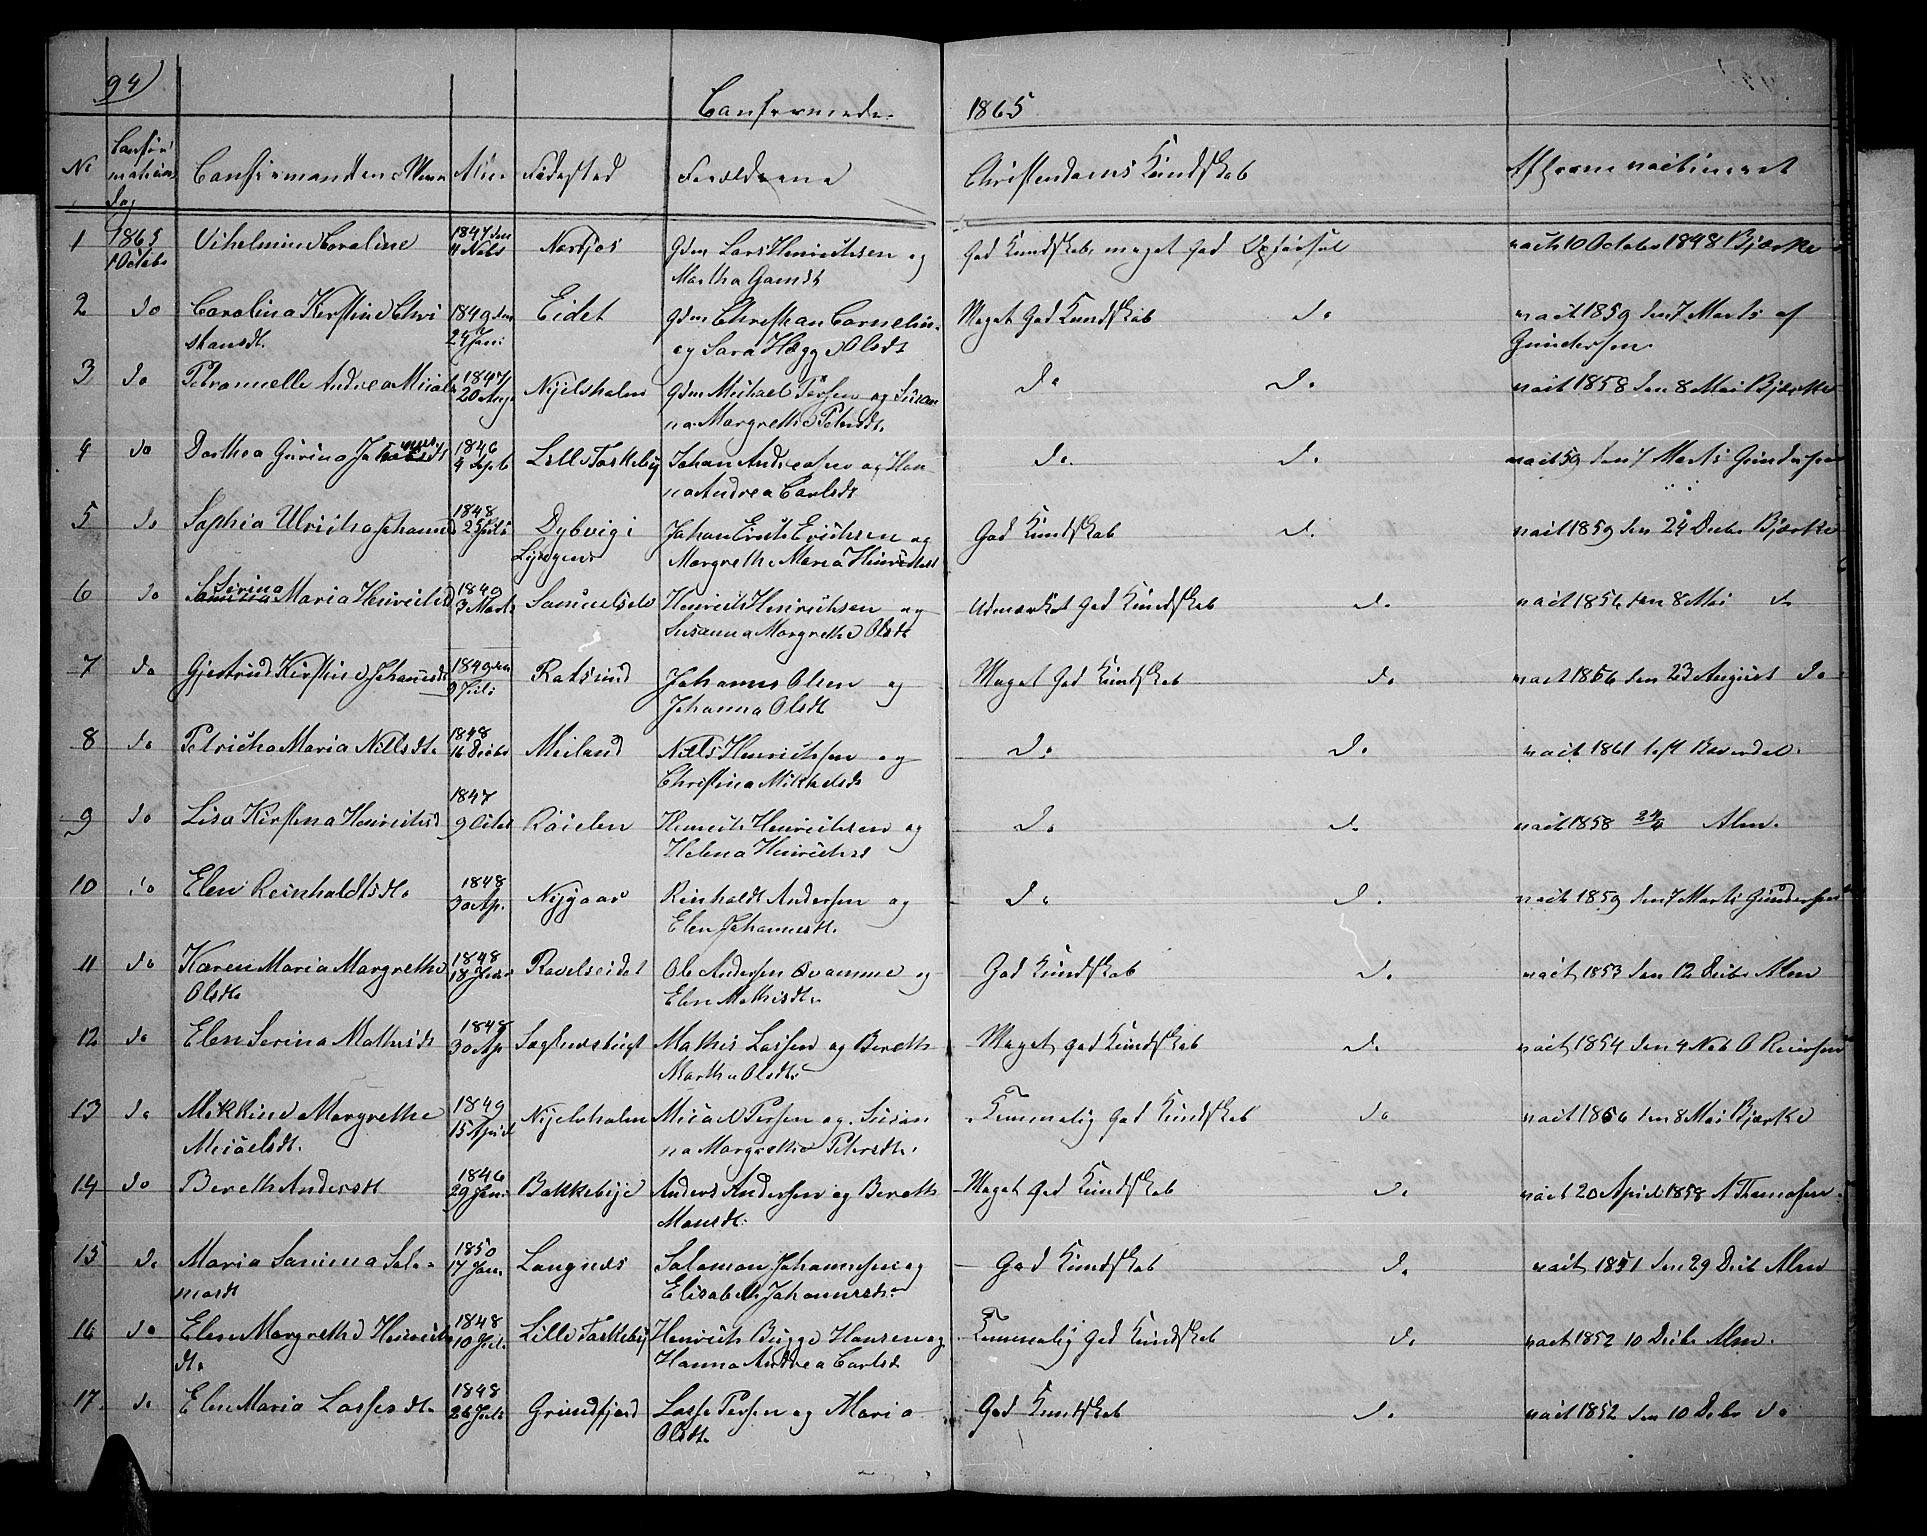 94)
Confirmede
1865
No
Confir
mations
dag
Confirmandens Navn
Alder
Fødested
Forældrene
Christendoms Kundskab
Af hvem vacsineret
1 1865 1 Octobr Vihelmine Caroline 1847 den 4 Nobr Nordfjos Gdm Lars Henrichsen og Martha Gamdt God Kundskab, meget god Opførsel vacs 10 October 1848 Bjærke
2 do Carolina Kirstine Chri stiansdt. 1849 den 24 Juni Eidet Gdm Christian Cornelius. og Sara Hegge Olsdt Meget God Kundskab do vacit 1859 den 7 Marts af Gundersen
3 do Petronnelle Andrea Micals 1847 20 Aug. Nyjelsholm Gdm Michael Persen og Susan na Margrethe Petersdt. do do vacit 1858 den 8 Mai Bjærke
4 do Dorthea Gurina Johannsdt 1846 4 Sept Lille Taskeby Johan Andreasen og Han na Andrea Carlsdt do. do vacit 59 den 7 Marts Gundersen
5 do Sophia Ulricha Johansd 1848 25 Juli Dybvig i Lyngens Johan Erich Erichsen og Margrethe Maria Henrichsdt God Kundskab do. vacit 1859 den 24 Decbr Bjærke
6 do Serina Maria Henrichsd 1849 3 Marts Samuelselv Henrich Henrichsen og Susanna Margrethe Olsdt Udmærket God Kundskab do. vacit 1856 den 8 Mai do
7 do Gjertrud Kirstine Johansdt 1849 den 9 Juli Rotsund Johannes Olsen og Johanna Olsdt Meget God Kundskab do vacit 1856 den 23 August do
8 do Petricha Maria Nillsdt. 1848 16 Decbr Meiland Nils Henrichsen og Christina Mikkelsdt do do vacit 1861 Boverdal.
9 do Lisa Kirstina Henrichsd 1847 9 Octbr Røielen Henrich Henrichsen og Helena Henrichsd do do. vacit 1858 Alm.
10 do Elen Reinholdtsdt. 1848 30 Ap. Nygaar Reinholdt Andersen og Elen Johannesdt. do do. vacit 1859 den 7 Marts Gundersen
11 do Karen Maria Margrethe Olsdt. 1848 18 Ravelseidet Ole Andersen Qvamme og Elen Mathisdt. God Kundskab do vacit 1853 den 12 Decbr Alm
12 do Elen Serina Mathisdt 1848 30 Ap Mathis Lassen og Bereth Martha Olsdt. Meget god Kundskab do. vacit 1854 den 4 Nob O Reiersen
13 do Mikkine Margrethe Micaelsdt. 1849 15 April Nyjelsholm Micael Persen og Susan na Margrethe Petersdt. Temmelig God Kundskab do vacit 1856 den 8 Mai Bjærke
14 do Bereth Andersdt 1846 29 Juni Bakkebye Anders Andersen og Bereth Monsdt. Meget God Kundskab do vacit 20 April 1858 A Thomasen
15 do Maria Samina Salo- monsdt 1850 17 Jan. Langnæs Salomon Johannesen og Elisabeth Johannesdt. God Kundskab do vacit 1851 den 29 Decb Alm
16 do Elen Margrethe Henrichs dt. 1848 10 Juli Lille Taskeby Henrich Bugge Hansen og Hanna Andrea Carlsd Temmelig God Kundskab do vacit 1852 10 Decbr Alm.
17 do Elen Maria Lassesdt. 1848 26 Juli Grundfjord Lasse Persen og Maria Olsdt. God Kundskab do. vacit 1852 den 10 Decbr do